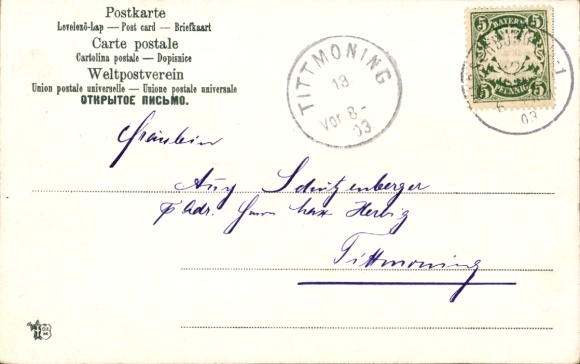 Postkarte
Levelező-Lap — Post card — Briefkaart
Carte postale
Cartolina postale — Dopisnice
Weltpostverein
Union postale universelle — Unione postale universale
ОТКРЫТОЕ ПИСЬМО.
TITTMONING
13
Vor 8-
03
5 BAYERN 5
5 PFENNIG 5
1
6
03
Fräulein
Aug Schützenberger
p. Adr. Herrn Max Herbig
Tittmoning